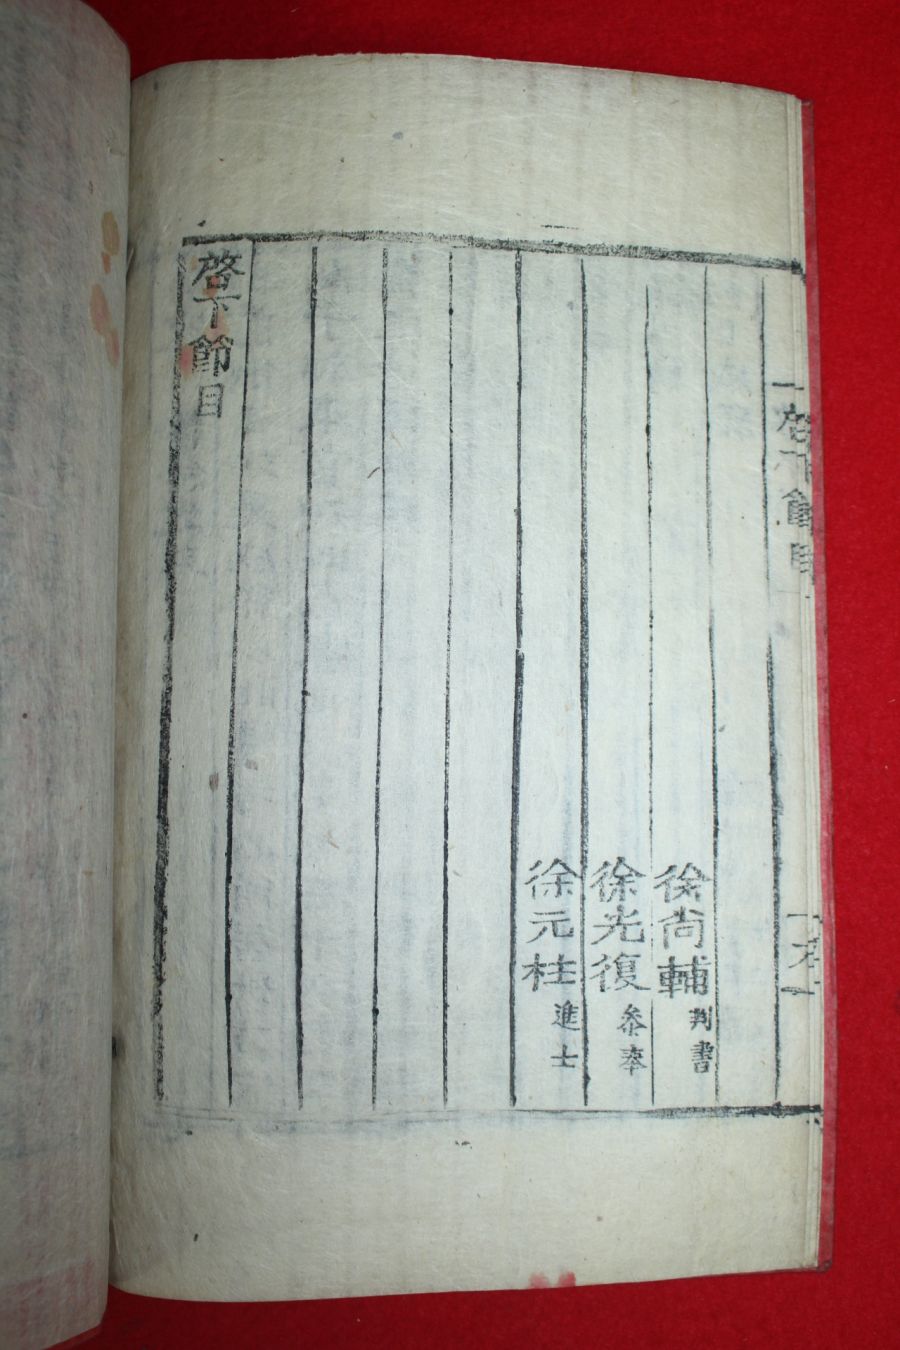 啓下節目
徐尙輔 判書
徐光復 叅奉
徐元柱 進士
啓下節目